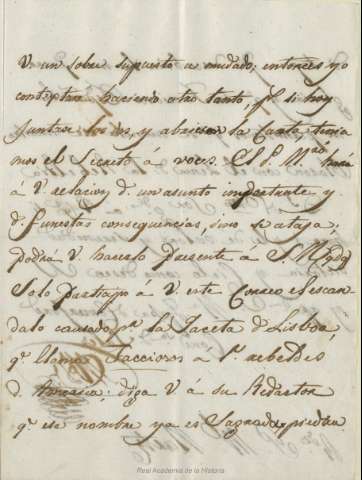 V. un sobre supuesto u mudado; entonces yo
contestare haciendo otro tanto, pr. si hoy
juntase los dos, y abriesen la Carta, tenia
mos el Secreto á voces. El Sr. hará
á V. relacion d. un asunto importante y
d. funestas consequencias, sino se ataja;
podra V. hacerlo presente á S. M. y
Solo participo á V. este Correo el escan
dalo causado pr. la Gaceta d. Lisboa,
qe. llama Facciosos a ls. rebeldes
d. America: diga V. á su Redactor
qe. ese nombre ya es Sagrado,
Real Academia de la Historia